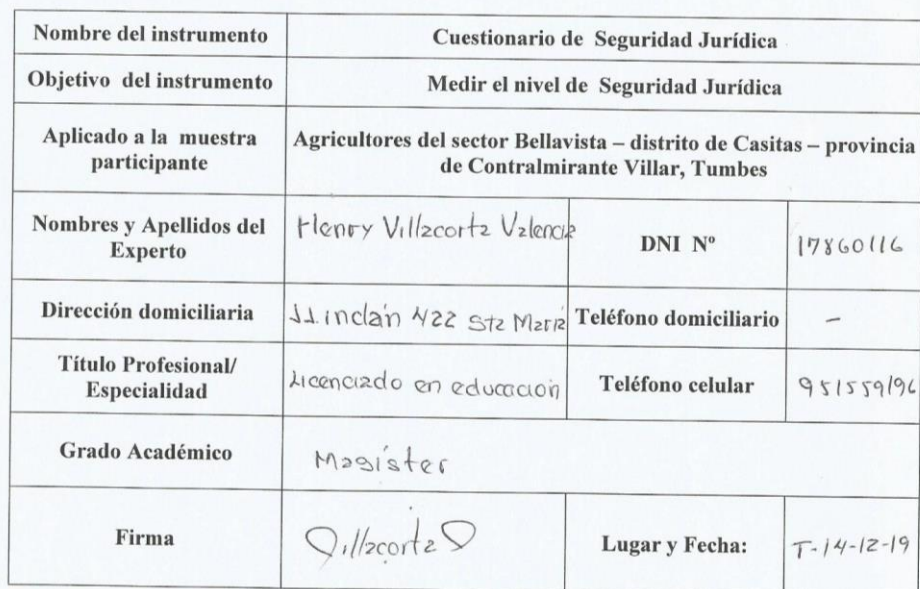 Nombre del instrumento
Cuestionario de Seguridad Jurídica
Objetivo del instrumento
Medir el nivel de Seguridad Jurídica
Aplicado a la muestra
participante
Agricultores del sector Bellavista – distrito de Casitas – provincia
de Contralmirante Villar, Tumbes
Nombres y Apellidos del
Experto
Henry Villacorta Valencia
DNI Nº
17860116
Dirección domiciliaria
JJ. inclán 422 Sta Maria
Teléfono domiciliario
-
Título Profesional/
Especialidad
Licenciado en educacion
Teléfono celular
951559196
Grado Académico
Magíster
Firma
Villacorta
Lugar y Fecha:
T-14-12-19